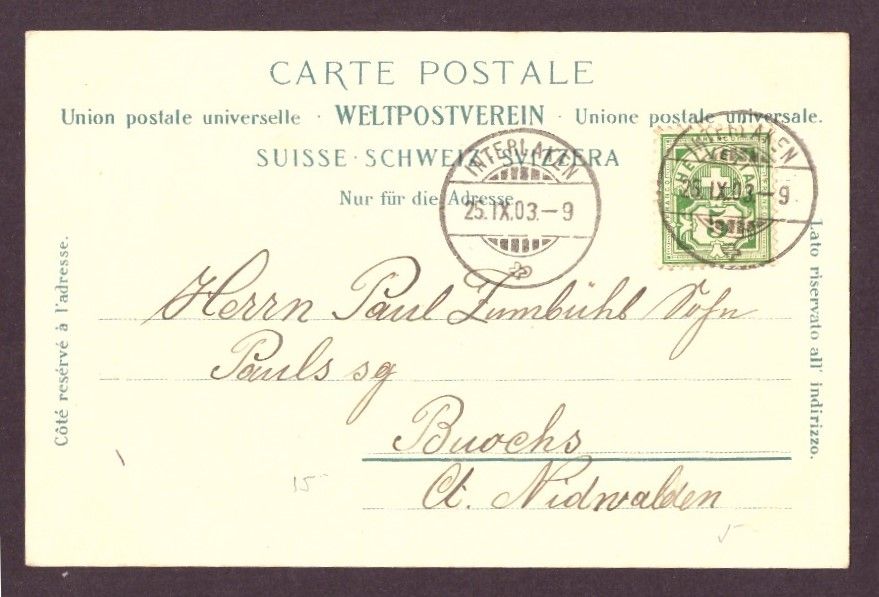 CARTE POSTALE
Union postale universelle · WELTPOSTVEREIN · Unione postale universale.
SUISSE · SCHWEIZ · SVIZZERA
Nur für die Adresse.
INTERLAKEN
25.IX.03.–9
INTERLAKEN
25.IX.03.–9
HELVETIA
5
Côté resérvé à l'adresse.
Lato riservato all' indirizzo.
Herrn Paul Zumbühl Sohn
Pauls sg
Buochs
Ct. Nidwalden
15
5